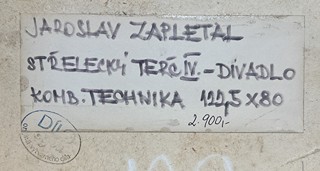 JAROSLAV ZAPLETAL
STŘELECKÝ TERČ IV. - DIVADLO
KOMB. TECHNIKA 122,5 X 80
2.900,-
Dílo